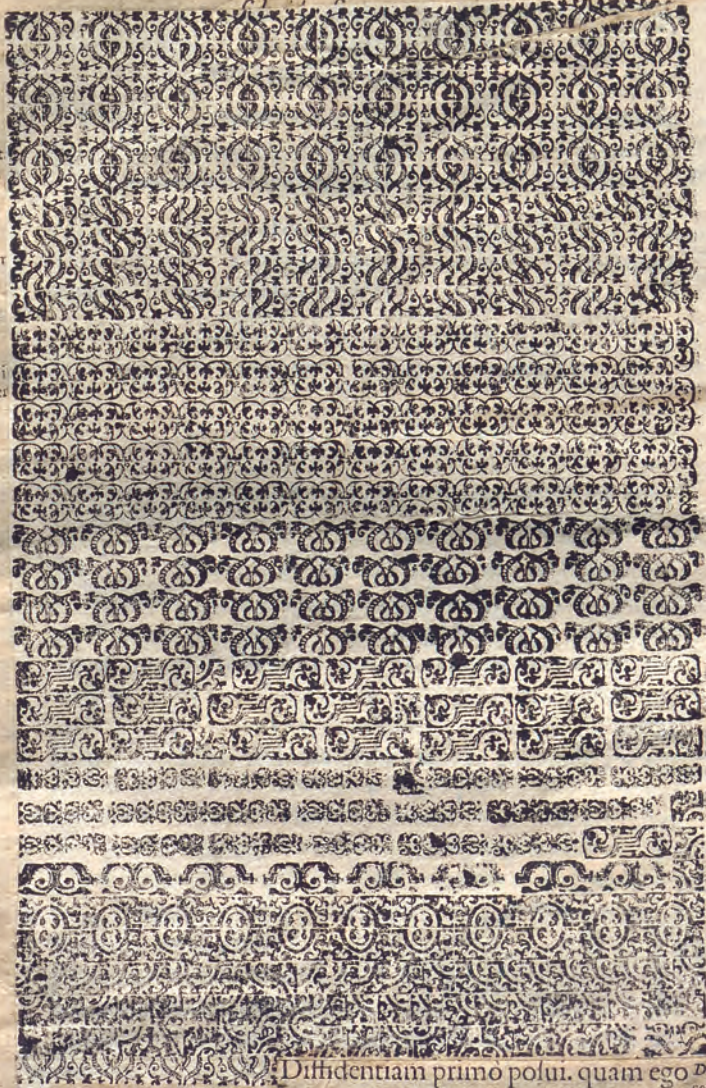 Diffidentiam primò poſui. quam ego D